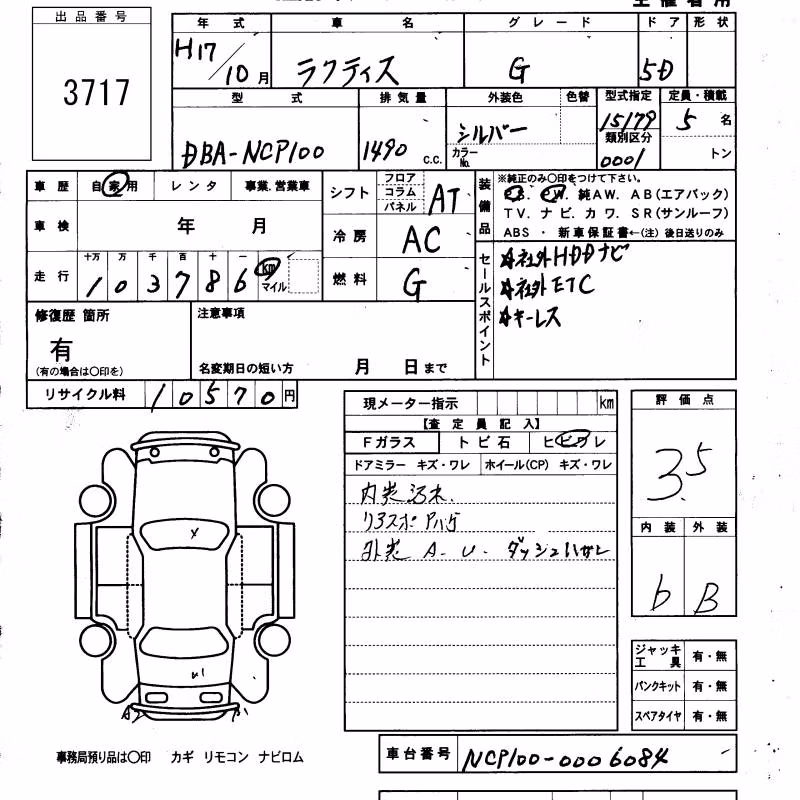 出品番号
3717
年式 車名 グレード ドア 形状
H17/10月 ラクティス G 5D
型式 排気量 外装色 色替 型式指定 定員・積載
DBA-NCP100 1490 C.C. シルバー 15179 5 名
カラーNo. 類別区分
0001 トン
車歴 自家用 レンタ 事業.営業車
車検 年 月
走行 十万 万 千 百 十 一
1 0 3 7 8 6 km マイル
シフト フロア コラム パネル AT
冷房 AC
燃料 G
装備品 ※純正のみ〇印をつけて下さい。
純AW. AB(エアバック)
TV. ナビ. カワ. SR(サンルーフ)
ABS ・ 新車保証書←(注) 後日送りのみ
セールスポイント
☆社外HDDナビ
☆社外ETC
☆キーレス
修復歴 箇所
有
(有の場合は〇印を)
注意事項
名変期日の短い方 月 日まで
リサイクル料 10570 円
現メーター指示 km
【査定員記入】
Fガラス トビ石 ヒビワレ
ドアミラー キズ・ワレ ホイール(CP) キズ・ワレ
内装汚れ.
リアスポ アハゲ
外装 A. U. ダッシュハガレ
評価点
3.5
内装 外装
b B
ジャッキ工具 有・無
パンクキット 有・無
スペアタイヤ 有・無
事務局預り品は〇印 カギ リモコン ナビロム
車台番号 NCP100-0006084